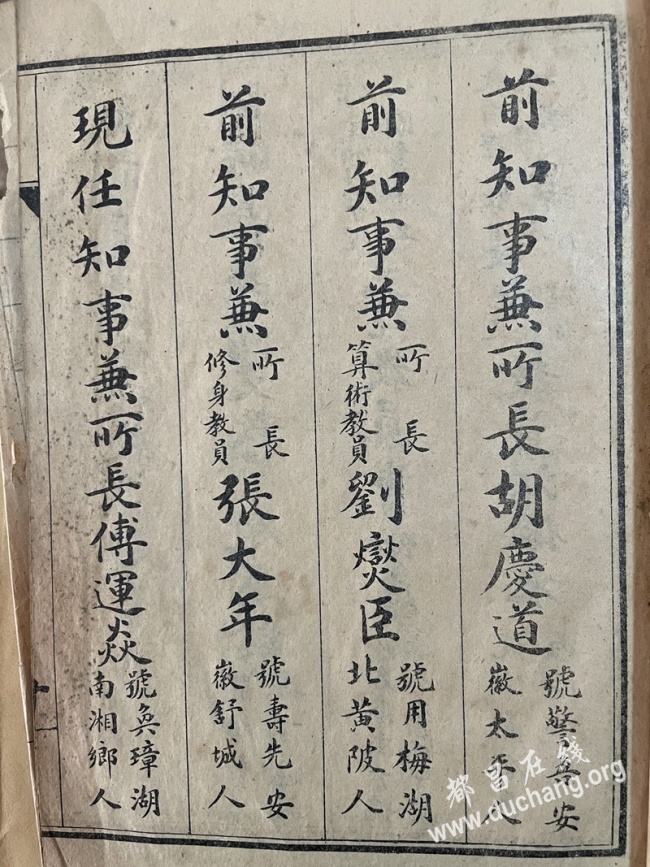 前知事兼所長胡慶道 號警吾安徽太平人
前知事兼所長算術教員劉爕臣 號用梅湖北黃陂人
前知事兼所長修身教員張大年 號壽先安徽舒城人
現任知事兼所長傅運焱 號奐璋湖南湘鄉人
都昌在线
www.duchang.org